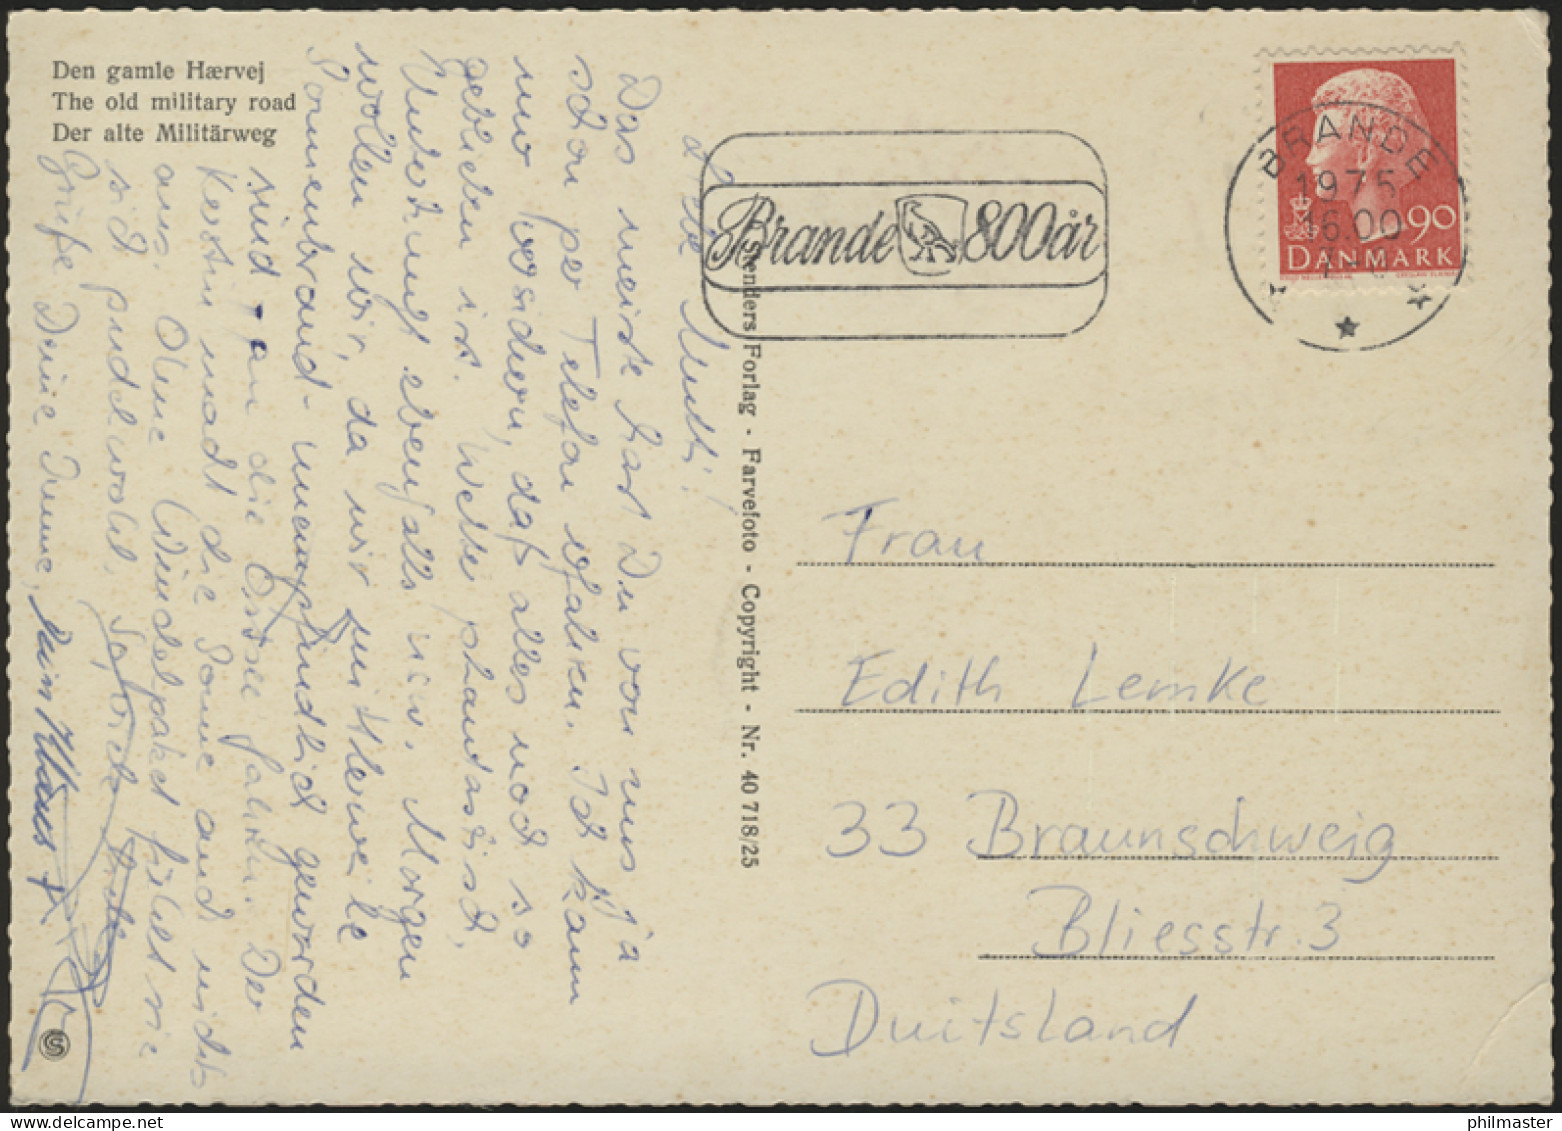 Den gamle Hærvej
The old military road
Der alte Militärweg
Liebe Mutti!
Das meiste hast Du von uns ja
schon per Telefon erfahren. Ich kann
nur versichern, daß alles noch so
geblieben ist. Wetter phantastisch,
Unterkunft ebenfalls usw. Morgen
wollen wir, da wir mittlerweile
Sonnenbrand-unempfindlich geworden
sind, an die Ostsee fahren. Der
Kerstin macht die Sonne auch nichts
aus. Ohne Windelpaket fühlt sie
sich pudelwohl.
Grüße Deine
Dein Klaus
Stenders Forlag - Farvefoto - Copyright - Nr. 40 718/25
Brande 800 år
BRANDE
1975
16.00
90
DANMARK
Frau
Edith Lemke
33 Braunschweig
Bliesstr. 3
Duitsland
philmaster.com